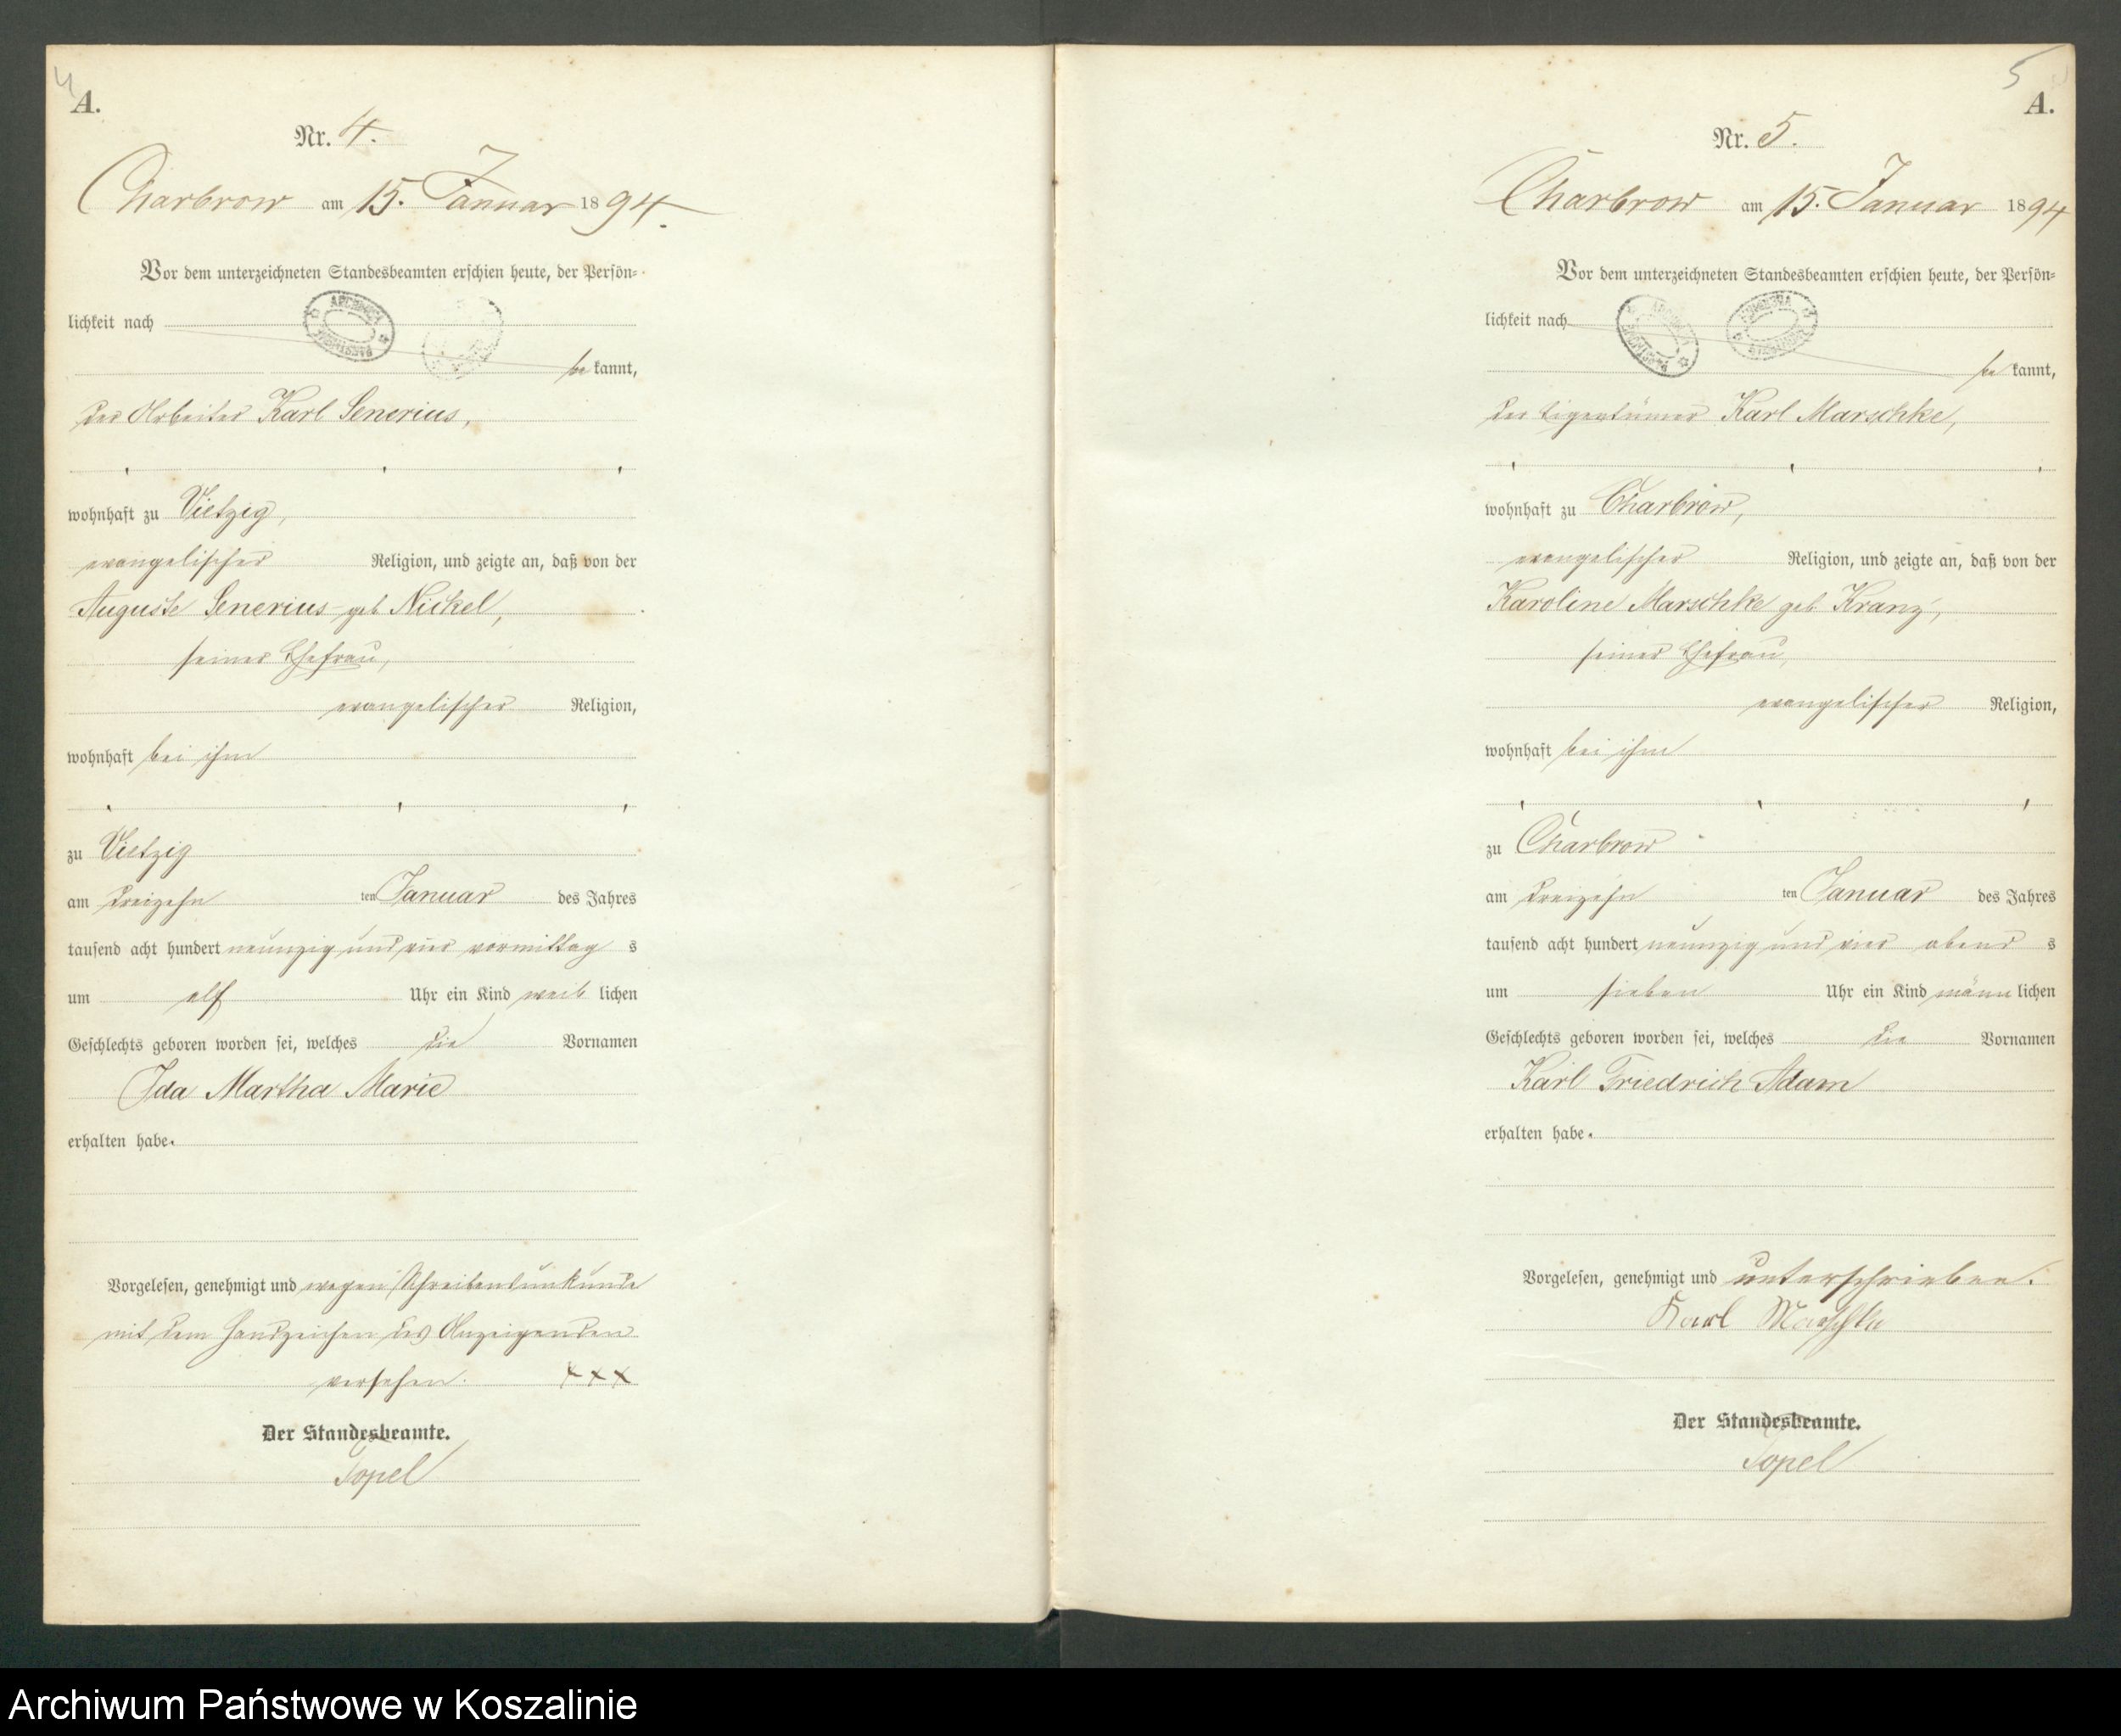 4
A.
Nr. 4.
Charbrow am 15. Januar 1894.
Vor dem unterzeichneten Standesbeamten erschien heute, der Persön-
lichkeit nach
be kannt,
der Arbeiter Karl Senerius,
wohnhaft zu Vietzig,
evangelischer Religion, und zeigte an, daß von der
Auguste Senerius geb. Nickel,
seiner Ehefrau,
evangelischer Religion,
wohnhaft bei ihm
zu Vietzig
am dreizehn ten Januar des Jahres
tausend acht hundert neunzig und vier vormittag s
um elf Uhr ein Kind weib lichen
Geschlechts geboren worden sei, welches die Vornamen
Ida Martha Marie
erhalten habe.
Vorgelesen, genehmigt und wegen Schreibensunkunde
mit dem Handzeichen des Anzeigenden
versehen. XXX
Der Standesbeamte.
Topel
5
A.
Nr. 5.
Charbrow am 15. Januar 1894
Vor dem unterzeichneten Standesbeamten erschien heute, der Persön-
lichkeit nach
be kannt,
der Eigentümer Karl Marschke,
wohnhaft zu Charbrow,
evangelischer Religion, und zeigte an, daß von der
Karoline Marschke geb. Kranz,
seiner Ehefrau,
evangelischer Religion,
wohnhaft bei ihm
zu Charbrow
am dreizehn ten Januar des Jahres
tausend acht hundert neunzig und vier abend s
um sieben Uhr ein Kind männ lichen
Geschlechts geboren worden sei, welches die Vornamen
Karl Friedrich Adam
erhalten habe.
Vorgelesen, genehmigt und unterschrieben.
Karl Marschke
Der Standesbeamte.
Topel
Archiwum Państwowe w Koszalinie